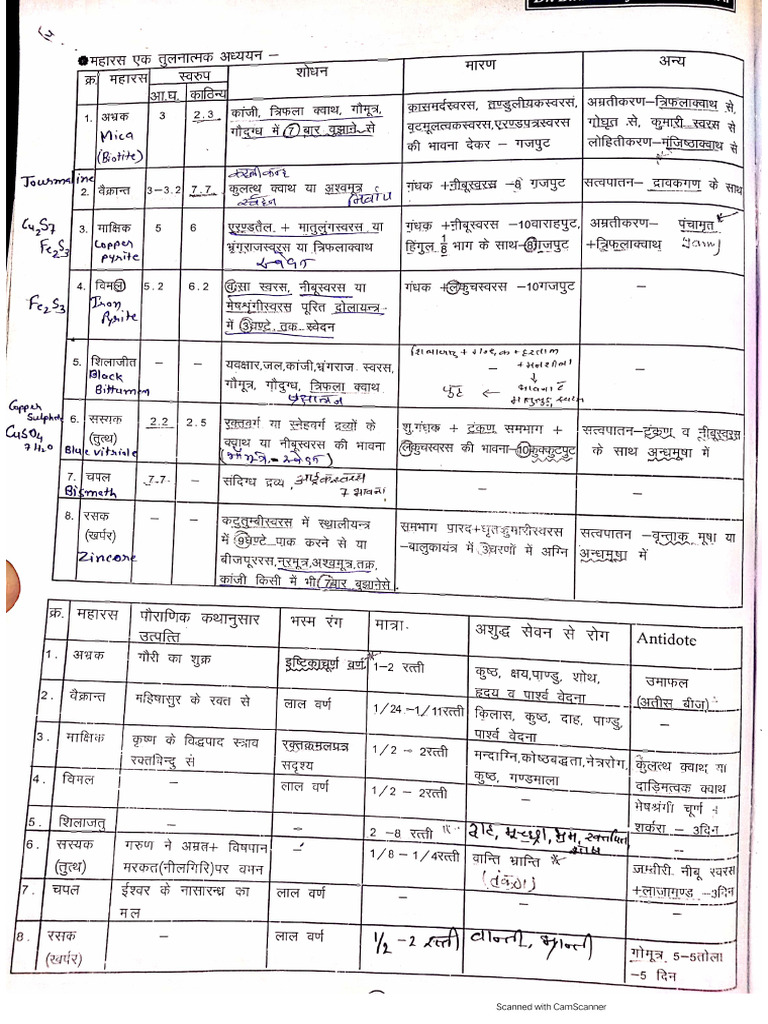 ●महारस एक तुलनात्मक अध्ययन –
क्र. महारस स्वरुप शोधन मारण अन्य
आ.घ. काठिन्य
1. अभ्रक 3 2.3 कांजी, त्रिफला क्वाथ, गौमूत्र, कासमर्दस्वरस, तण्डुलीयकस्वरस, अम्रतीकरण–त्रिफलाक्वाथ से,
Mica गौदुग्ध में 7 बार बुझाने से वटमूलत्वकस्वरस,एरण्डपत्रस्वरस गोघृत से, कुमारी स्वरस से
(Biotite) की भावना देकर – गजपुट लोहितीकरण–मंजिष्ठाक्वाथ से
Tourmaline
2. वैक्रान्त 3–3.2 7.7 कुलत्थ क्वाथ या अश्वमूत्र गंधक +नीबूस्वरस –8 गजपुट सत्वपातन– द्रावकगण के साथ
स्वेदन निर्वाप
Cu2S7 3. माक्षिक 5 6 एरण्डतैल. + मातुलुंगस्वरस या गंधक +नीबूस्वरस –10वाराहपुट, अम्रतीकरण– पंचामृत
Fe2S3 Copper भ्रंगराजस्वरस या त्रिफलाक्वाथ हिंगुल 1/8 भाग के साथ–8गजपुट +त्रिफलाक्वाथ
Pyrite स्वेदन
4. विमल 5.2 6.2 वासा स्वरस, नीबूस्वरस या गंधक +लकुचस्वरस –10गजपुट –
Fe2S3 Iron मेषश्रृंगीस्वरस पूरित दोलायन्त्र
Pyrite में 3घण्टे तक स्वेदन
5. शिलाजीत – – यवक्षार,जल,कांजी,भ्रंगराज स्वरस, – –
Black गौमूत्र, गौदुग्ध, त्रिफला क्वाथ
Bittumen प्रक्षालन
Copper Sulphate
6. सस्यक 2.2 2.5 रक्तवर्ग या स्नेहवर्ग द्रव्यों के शु.गंधक + टंकण समभाग + सत्वपातन–टंकण व नीबूस्वरस
CuSO4 7H2O (तुत्थ) क्वाथ या नीबूस्वरस की भावना लकुचस्वरस की भावना–10कुक्कुटपुट के साथ अन्धमूषा में
Blue vitriole (गौमूत्र – स्वेदन)
7. चपल 7.7 – संदिग्ध द्रव्य, आर्द्रकस्वरस – –
Bismath 7 भावना
8. रसक – – कटुतुम्बीस्वरस में स्थालीयन्त्र समभाग पारद+घृतकुमारीस्वरस सत्वपातन –वृन्ताक मूषा या
(खर्पर) में 9घण्टे–पाक करने से या –बालुकायंत्र में 3चरणों में अग्नि अन्धमूषा में
Zincore बीजपूररस,नरमूत्र,अश्वमूत्र,तक्र,
कांजी किसी में भी 7बार बुझानेसे
क्र. महारस पौराणिक कथानुसार भस्म रंग मात्रा. अशुद्ध सेवन से रोग Antidote
उत्पत्ति
1. अभ्रक गौरी का शुक्र इष्टिकाचूर्ण वर्ण 1–2 रत्ती कुष्ठ, क्षय,पाण्डु, शोथ, उमाफल
हृदय व पार्श्व वेदना (अतीस बीज)
2. वैक्रान्त महिषासुर के रक्त से लाल वर्ण 1/24 –1/11रत्ती किलास, कुष्ठ, दाह, पाण्डु, –
पार्श्व वेदना
3. माक्षिक कृष्ण के विद्धपाद स्त्राव रक्तकमलपत्र 1/2 – 2रत्ती मन्दाग्नि,कोष्ठबद्धता,नेत्ररोग, कुलत्थ क्वाथ या
रक्तविन्दु से सदृश्य कुष्ठ, गण्डमाला दाडिमत्वक क्वाथ
4. विमल – लाल वर्ण 1/2 – 2रत्ती – मेषश्रंगी चूर्ण +
शर्करा – 3दिन
5. शिलाजतु – – 2 –8 रत्ती दाह, मूर्च्छा, भ्रम, रक्तपित्त
6. सस्यक गरुण ने अम्रत+ विषपान – 1/8 – 1/4रत्ती वान्ति भ्रान्ति जम्वीरी. नीबू स्वरस
(तुत्थ) मरकत(नीलगिरि)पर वमन +लाजागण्ड –3दिन
7. चपल ईश्वर के नासारन्ध्र का लाल वर्ण – – –
मल
8. रसक – लाल वर्ण 1/2 – 2 रत्ती वान्ती, भ्रान्ती गोमूत्र. 5–5तोला
(खर्पर) –5 दिन
Scanned with CamScanner